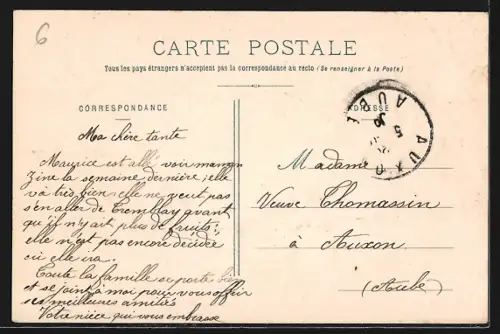 6
CARTE POSTALE
Tous les pays étrangers n'acceptent pas la correspondance au recto (Se renseigner à la Poste)
CORRESPONDANCE
Ma chère tante
Maurice est allé voir maman
Zine la semaine dernière; elle
va très bien elle ne veut pas
s'en aller de Tremblay avant
qu'il n'y ait plus de fruits;
elle n'est pas encore décidée
où elle ira.
Toute la famille se porte
et se joint à moi pour vous offrir
ses meilleures amitiés
Votre nièce qui vous embrasse
ADRESSE
AUXON
5
AUBE
Madame
Veuve Thomassin
à Auxon
(Aube)